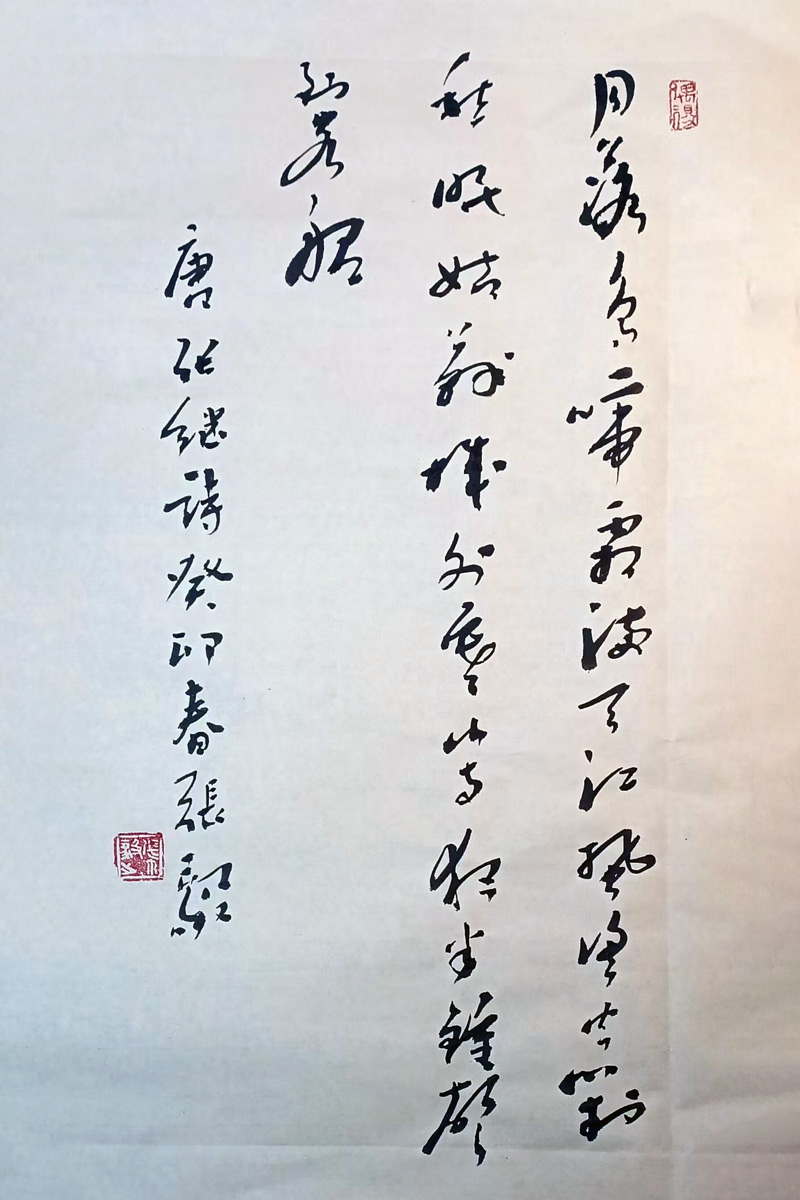 偶得
月落烏啼霜满天江楓渔火對
愁眠姑蘇城外寒山寺夜半鍾聲
到客船
唐张继詩癸卯春張